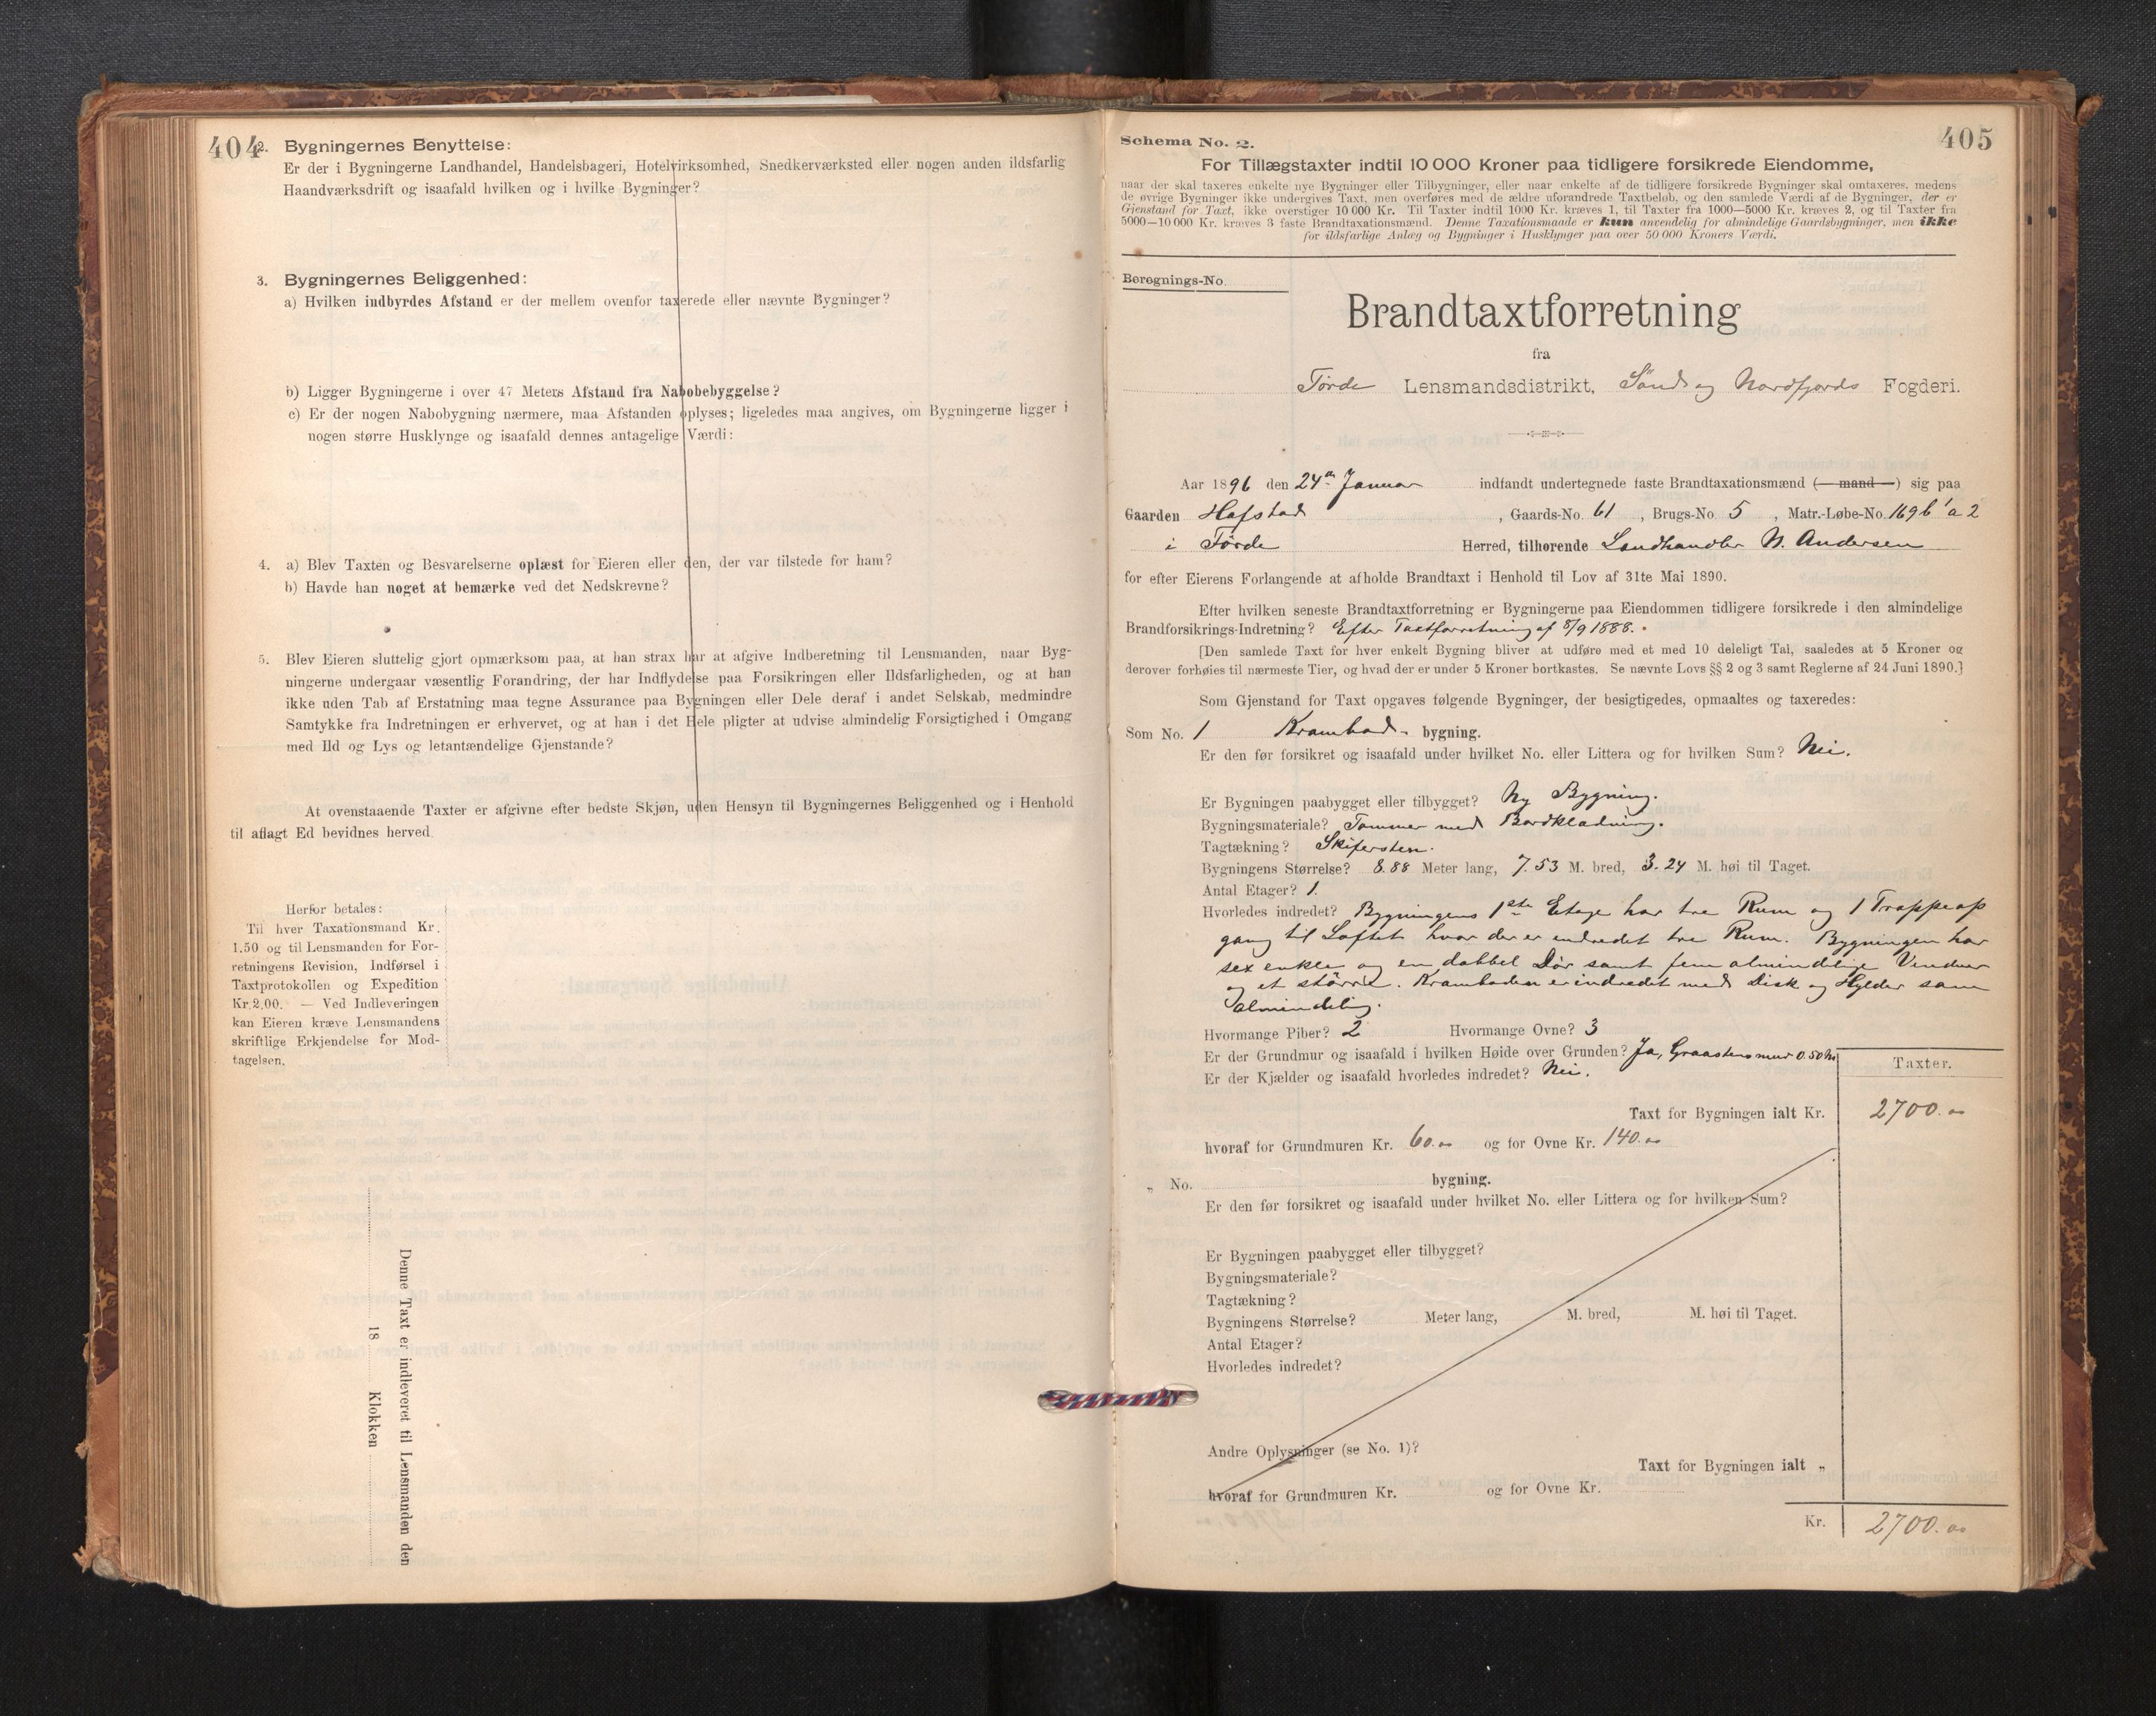 404
2. Bygningernes Benyttelse:
Er der i Bygningerne Landhandel, Handelsbageri, Hotelvirksomhed, Snedkerværksted eller nogen anden ildsfarlig
Haandværksdrift og isaafald hvilken og i hvilke Bygninger?
3. Bygningernes Beliggenhed:
a) Hvilken indbyrdes Afstand er der mellem ovenfor taxerede eller nævnte Bygninger?
b) Ligger Bygningerne i over 47 Meters Afstand fra Nabobebyggelse?
c) Er der nogen Nabobygning nærmere, maa Afstanden oplyses; ligeledes maa angives, om Bygningerne ligger i
nogen større Husklynge og isaafald dennes antagelige Værdi:
4. a) Blev Taxten og Besvarelserne oplæst for Eieren eller den, der var tilstede for ham?
b) Havde han noget at bemærke ved det Nedskrevne?
5. Blev Eieren sluttelig gjort opmærksom paa, at han strax har at afgive Indberetning til Lensmanden, naar Byg-
ningerne undergaar væsentlig Forandring, der har Indflydelse paa Forsikringen eller Ildsfarligheden, og at han
ikke uden Tab af Erstatning maa tegne Assurance paa Bygningen eller Dele deraf i andet Selskab, medmindre
Samtykke fra Indretningen er erhvervet, og at han i det Hele pligter at udvise almindelig Forsigtighed i Omgang
med Ild og Lys og letantændelige Gjenstande?
At ovenstaaende Taxter er afgivne efter bedste Skjøn, uden Hensyn til Bygningernes Beliggenhed og i Henhold
til aflagt Ed bevidnes herved.
Herfor betales:
Til hver Taxationsmand Kr.
1.50 og til Lensmanden for For-
retningens Revision, Indførsel i
Taxtprotokollen og Expedition
Kr. 2.00. — Ved Indleveringen
kan Eieren kræve Lensmandens
skriftlige Erkjendelse for Mod-
tagelsen.
Denne Taxt er indleveret til Lensmanden den
18 Klokken
405
Schema No. 2.
For Tillægstaxter indtil 10 000 Kroner paa tidligere forsikrede Eiendomme,
naar der skal taxeres enkelte nye Bygninger eller Tilbygninger, eller naar enkelte af de tidligere forsikrede Bygninger skal omtaxeres, medens
de øvrige Bygninger ikke undergives Taxt, men overføres med de ældre uforandrede Taxtbeløb, og den samlede Værdi af de Bygninger, der er
Gjenstand for Taxt, ikke overstiger 10 000 Kr. Til Taxter indtil 1000 Kr. kræves 1, til Taxter fra 1000—5000 Kr. kræves 2, og til Taxter fra
5000—10 000 Kr. kræves 3 faste Brandtaxationsmænd. Denne Taxationsmaade er kun anvendelig for almindelige Gaardsbygninger, men ikke
for ildsfarlige Anlæg og Bygninger i Husklynger paa over 50 000 Kroners Værdi.
Beregnings-No.
Brandtaxtforretning
fra
Førde Lensmandsdistrikt, Sønd og Nordfjords Fogderi.
Aar 1896 den 24de Januar indfandt undertegnede faste Brandtaxationsmænd (mand) sig paa
Gaarden Hafstad, Gaards-No. 61, Brugs-No 5, Matr.-Løbe-No. 169 b 1 a 2
i Førde Herred, tilhørende Landhandler N. Andersen
for efter Eierens Forlangende at afholde Brandtaxt i Henhold til Lov af 31te Mai 1890.
Efter hvilken seneste Brandtaxtforretning er Bygningerne paa Eiendommen tidligere forsikrede i den almindelige
Brandforsikrings-Indretning? Efter Taxtforretning af 8/9 1888.
[Den samlede Taxt for hver enkelt Bygning bliver at udføre med et med 10 deleligt Tal, saaledes at 5 Kroner og
derover forhøies til nærmeste Tier, og hvad der er under 5 Kroner bortkastes. Se nævnte Lovs §§ 2 og 3 samt Reglerne af 24 Juni 1890.]
Som Gjenstand for Taxt opgaves følgende Bygninger, der besigtigedes, opmaaltes og taxeredes:
Som No. 1 Krambod- bygning.
Er den før forsikret og isaafald under hvilket No. eller Littera og for hvilken Sum? Nei.
Er Bygningen paabygget eller tilbygget? Ny Bygning.
Bygningsmateriale? Tømmer med Bordklædning.
Tagtækning? Skifersten.
Bygningens Størrelse? 8.88 Meter lang, 7.53 M. bred, 3.24 M. høi til Taget.
Antal Etager? 1.
Hvorledes indredet? Bygningens 1ste Etage har tre Rum og 1 Trappeop
gang til Loftet hvor der er indredet tre Rum. Bygningen har
sex enkle og en dobbel Dør samt fem almindelige Vinduer
og et større. Kramboden er indredet med Disk og Hylder som
almindelig.
Hvormange Piber? 2 Hvormange Ovne? 3
Er der Grundmur og isaafald i hvilken Høide over Grunden? Ja, Graastensmur 0.50 M
Er der Kjælder og isaafald hvorledes indredet? Nei.
Taxter.
Taxt for Bygningen ialt Kr. 2700.00
hvoraf for Grundmuren Kr. 60.00 og for Ovne Kr. 140.00
„ No. bygning.
Er den før forsikret og isaafald under hvilket No. eller Littera og for hvilken Sum?
Er Bygningen paabygget eller tilbygget?
Bygningsmateriale?
Tagtækning?
Bygningens Størrelse? Meter lang, M. bred, M. høi til Taget.
Antal Etager?
Hvorledes indredet?
Andre Oplysninger (se No. 1)?
Taxt for Bygningen ialt „
hvoraf for Grundmuren Kr. og for Ovne Kr.
Kr. 2700.00